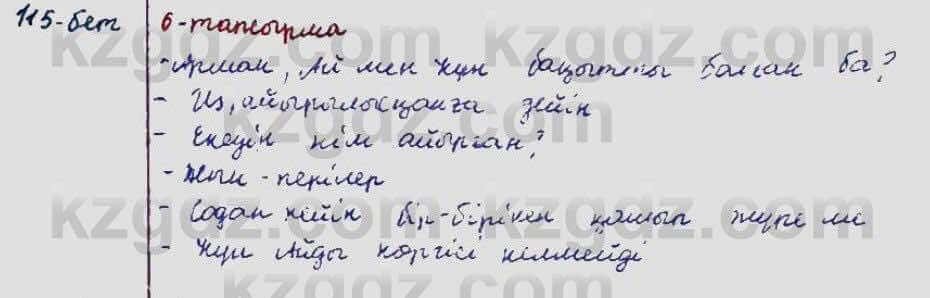 115-бет 6-тапсырма
- Арман, Ай мен Күн бақытты болған ба?
- Иә, айырылысқанға дейін
- Екеуін кім айырған?
- Жын-перілер
- Содан кейін бір-бірінен қашып жүре ме
- Күн Айды көргісі келмейді
kzgdz.com